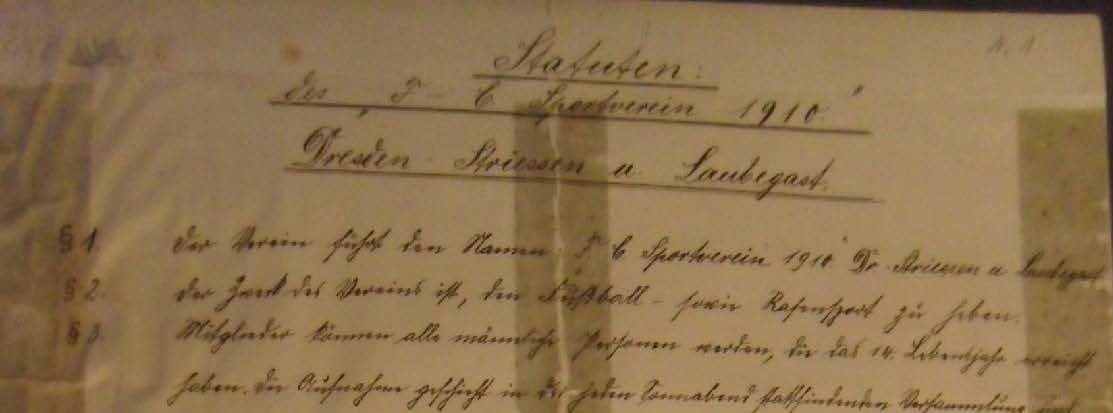 Statuten:
des "F. C. Sportverein 1910"
Dresden-Striessen u. Laubegast.
§ 1. Der Verein führt den Namen: F. C. Sportverein 1910" Dr.-Striessen u Laubegast
§ 2. Der Zweck des Vereins ist, den Fußball- sowie Rasensport zu heben.
§ 3. Mitglieder können alle männliche Personen werden, die das 14. Lebensjahr erreicht
haben. Die Aufnahme geschieht in der jeden Sonnabend stattfindenden Versammlung